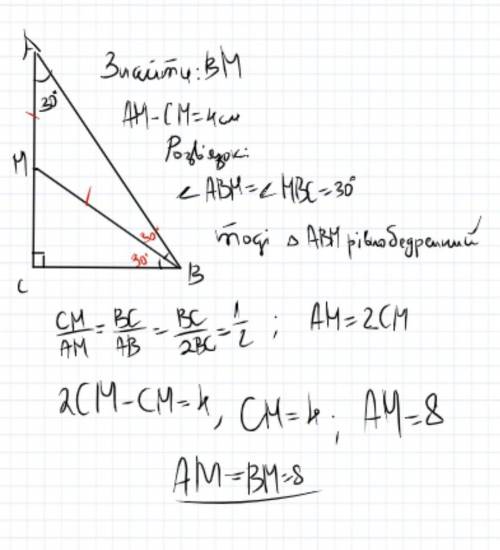 A
Знайти: BM
30°
AM-CM=4см
Розв'язок:
M
∠ABM=∠MBC=30°
30°
тоді Δ ABM рівнобедренний
30°
B
C
CM/AM = BC/AB = BC/2BC = 1/2 ; AM=2CM
2CM-CM=4, CM=4; AM=8
AM=BM=8